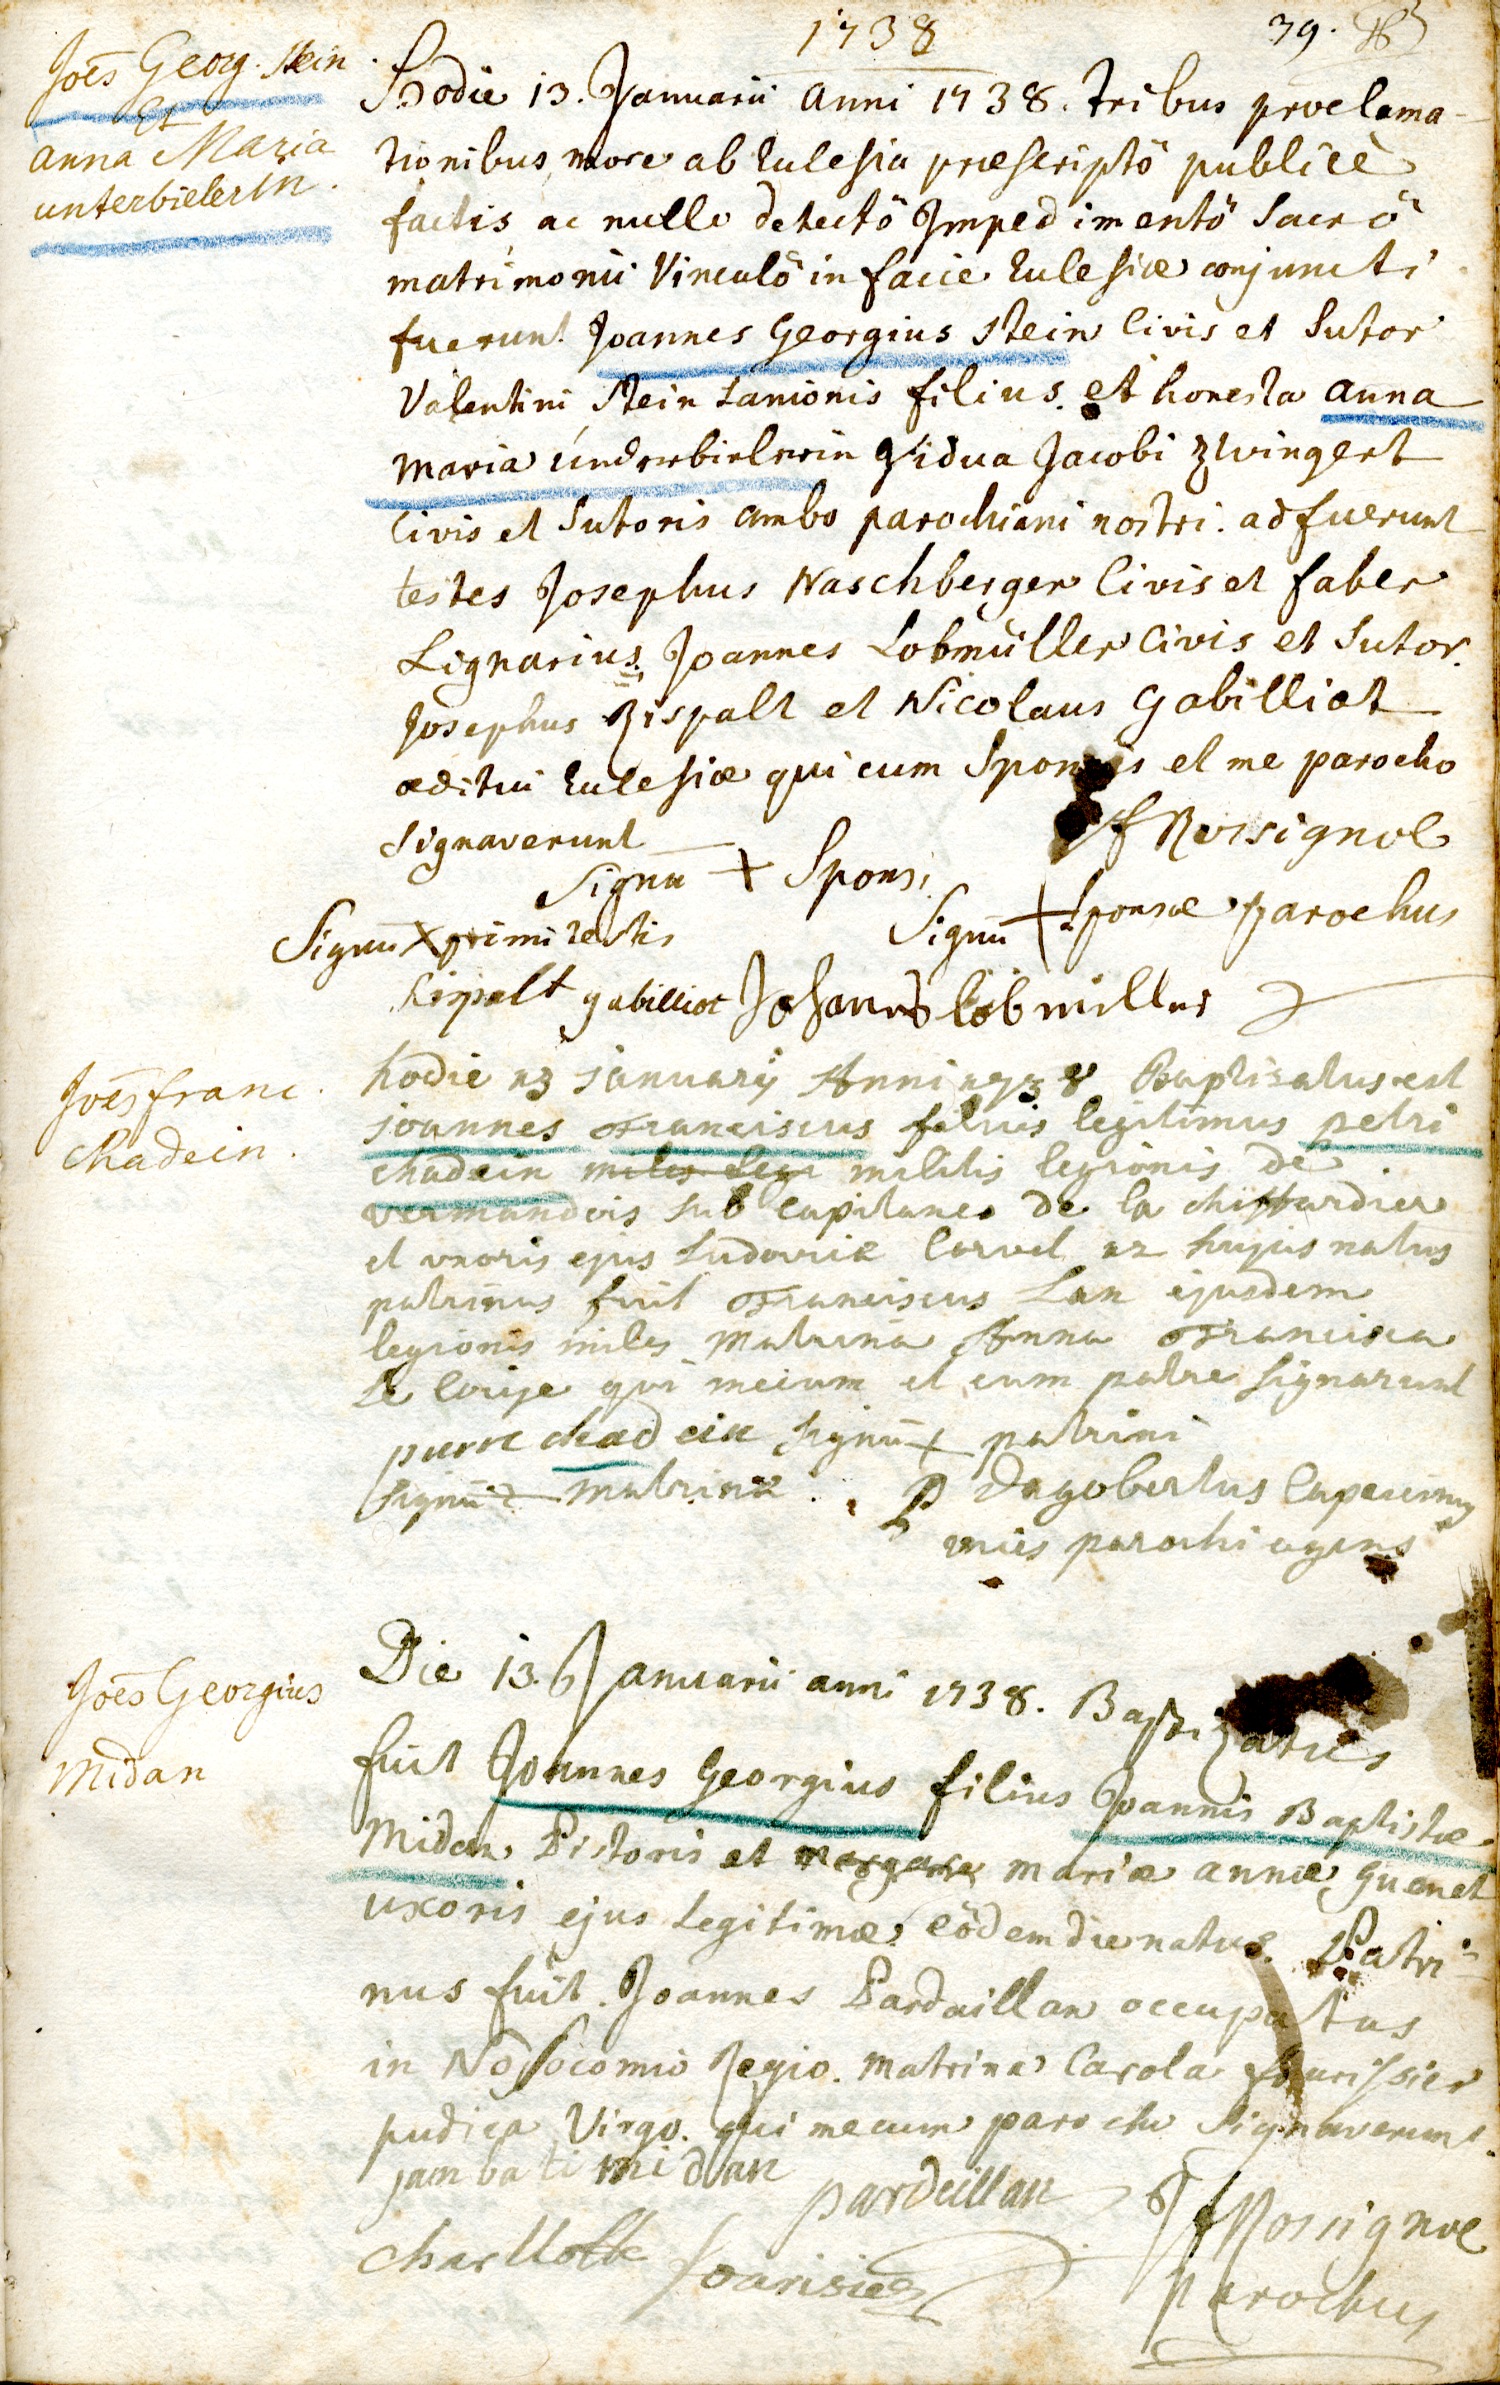 1738
79.
Joes Georg. Stein
et
anna Maria
unterbielerin.
Hodie 13. Januarii anni 1738. tribus proclama-
tionibus more ab Eulesia præscriptö publicè
factis ac nullo detectö Impedimentö Sacrö
matrimonii Vinculö in facie Eulesiæ conjuncti
fuerunt Joannes Georgius Stein Civis et Sutor
Valentini Stein Lanionis filius. et honesta anna
maria underbielerin Vidua Jacobi Zwingert
Civis et Sutoris ambo parochiani nostri. adfuerunt
testes Josephus Naschberger Civis et faber
Lignarius. Joannes Lobmüller Civis et Sutor.
Josephus Rispalt et Nicolaus Gabilliot
æditui Eulesiæ qui cum Sponsis et me parocho
signaverunt
JfRossignol
Signū + Sponsi
Signū + Sponsæ parochus
Signū X primi testis
Rispalt gabilliot Johannes löbmiller
Joes franc.
chadein.
hodie 13 januarij Anni 1738 Baptisatus est
joannes Franciscus filius legitimus petri
chadein miles legi militis legionis de
vermandois sub capitaneo de la
et uxoris ejus Ludovicæ Corvel 12 hujus natus
patrinus fuit Franciscus Lan ejusdem
legionis miles Matrina Anna Francisca
Le qui mecum et cum patre signarunt
pierre chadein signū + patrini
signū + matrinæ. P Dagobertus Capucinus
vices parochi agens
Joēs Georgius
Midan
Die 13. Januarii anni 1738. Baptizatus
fuit Joannes Georgius filius Joannis Baptistæ
Midan Pistoris et mariæ annæ guenet
uxoris ejus Legitimæ eödem die natus. Patri-
nus fuit. Joannes Pardaillan occupatus
in Nosocomio Regio. Matrina Carola
pudica Virgo. qui mecum parocho Signaverunt.
jambati midan pardaillan JfRossignol
charllotte parochus